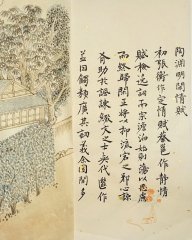 陶淵明閒情賦
初張衡作定情賦蔡邕作靜情
賦檢逸詞而宗澹泊始則蕩以思慮
而終歸閑正將以抑流宕之邪心諒
有助於諷諫綴文之士奕代繼作
並因觸類廣其詞義余園閭多